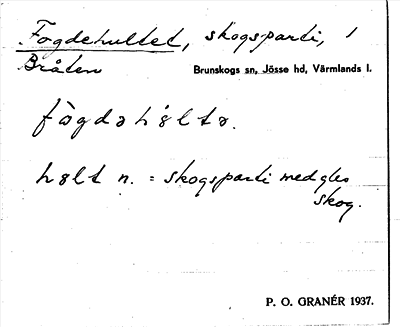 Fogdehultet, skogsparti, 1
Bråten
Brunskogs sn, Jösse hd, Värmlands l.
fògdəhɵltə.
hɵlt n. = skogsparti med gles
skog.
P. O. GRANÉR 1937.